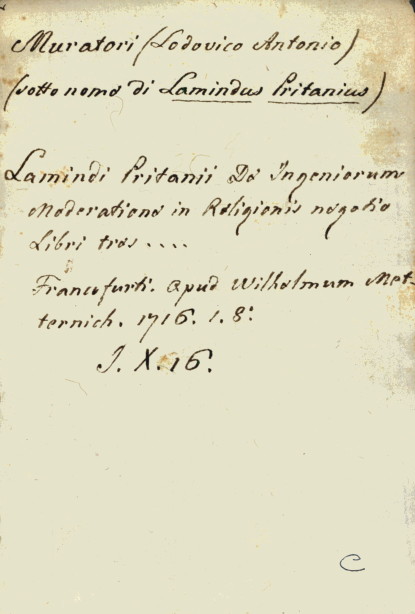 Muratori (Lodovico Antonio)
(sotto nome di Lamindus Pritanius)
Lamindi Pritanii De Ingeniorum
Moderatione in Religionis negotio
Libri tres....
Francofurti. apud Wilhelmum Met-
ternich. 1716. 1. 8.º
J. X. 16.
C